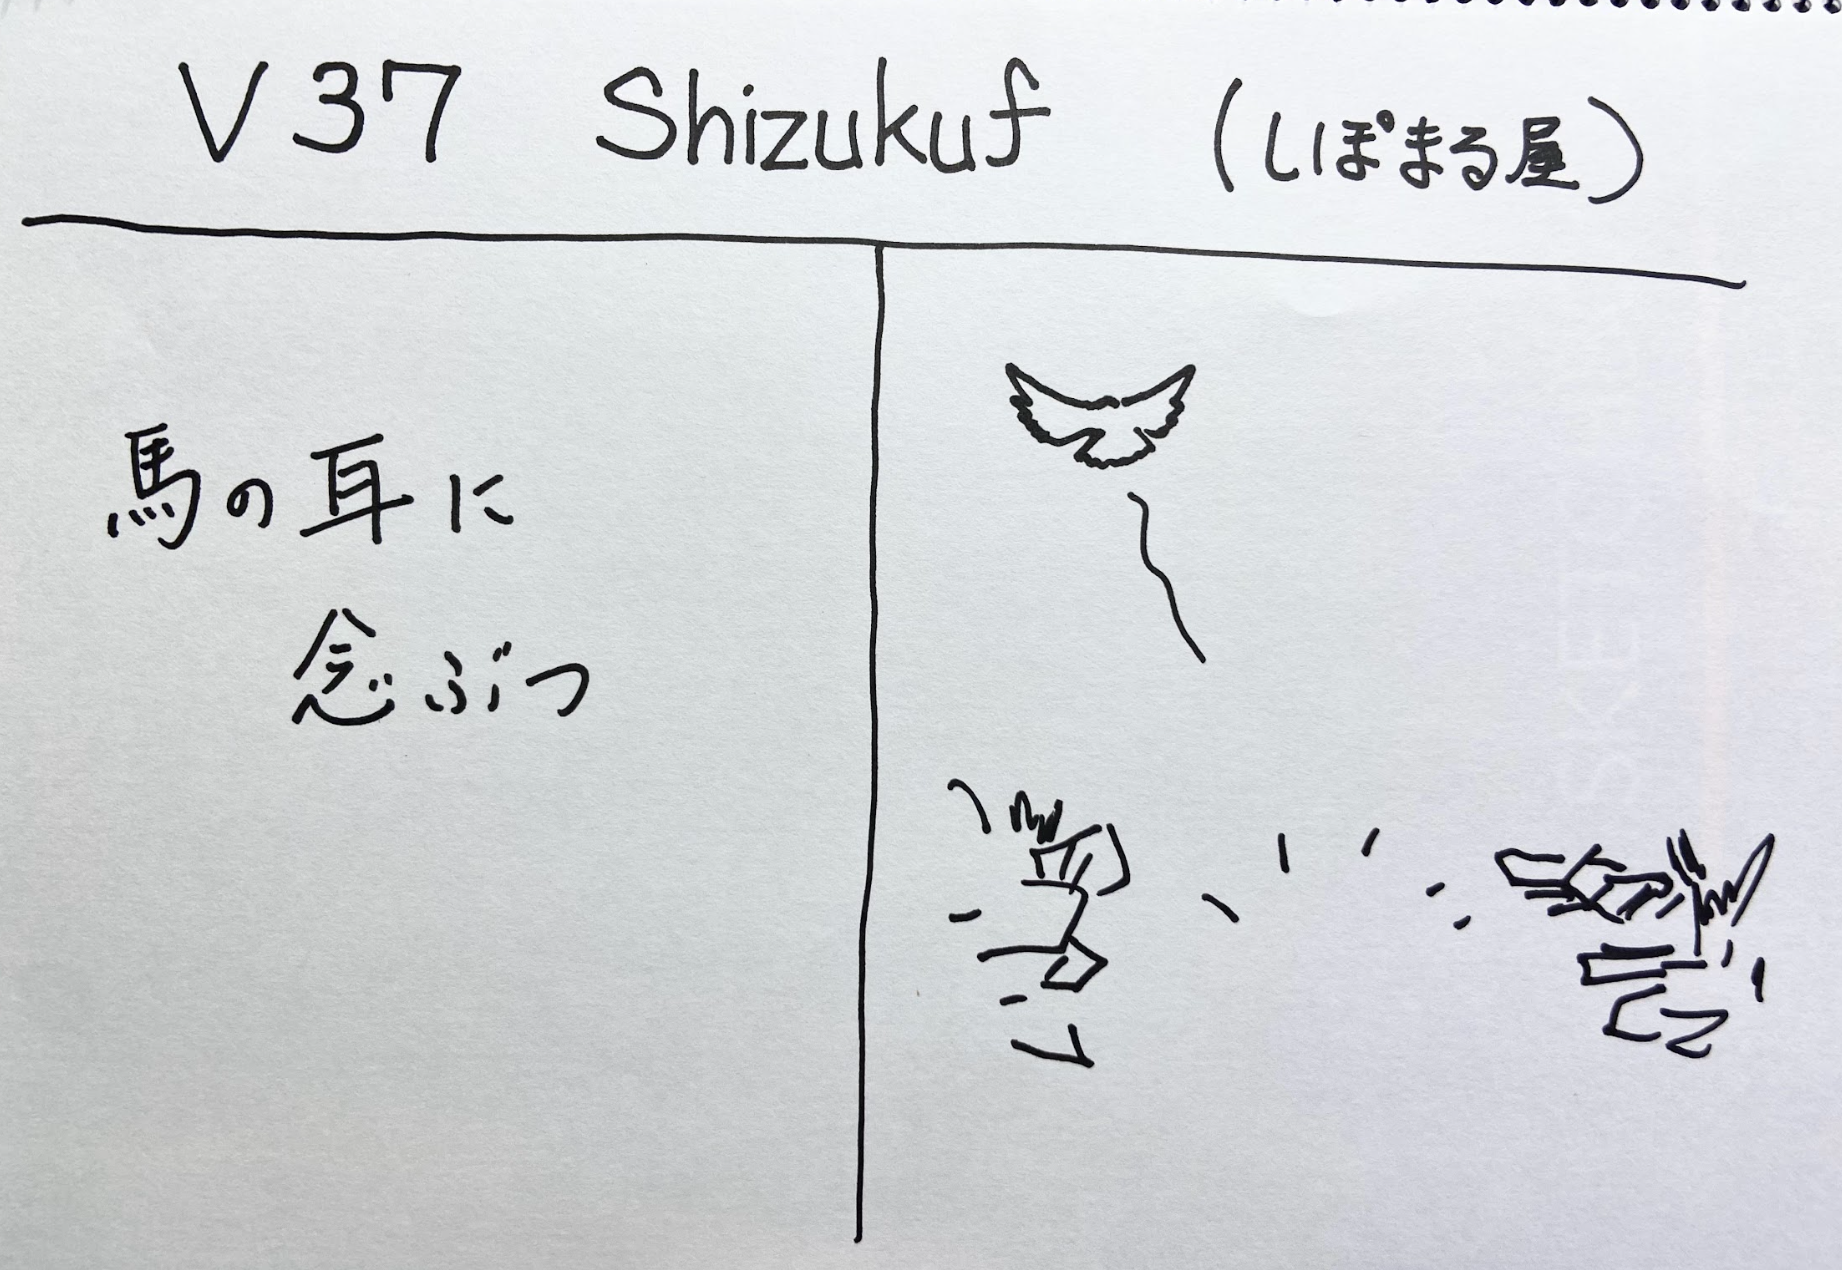 V37 Shizukuf (しぽまる屋)
馬の耳に
念ぶつ